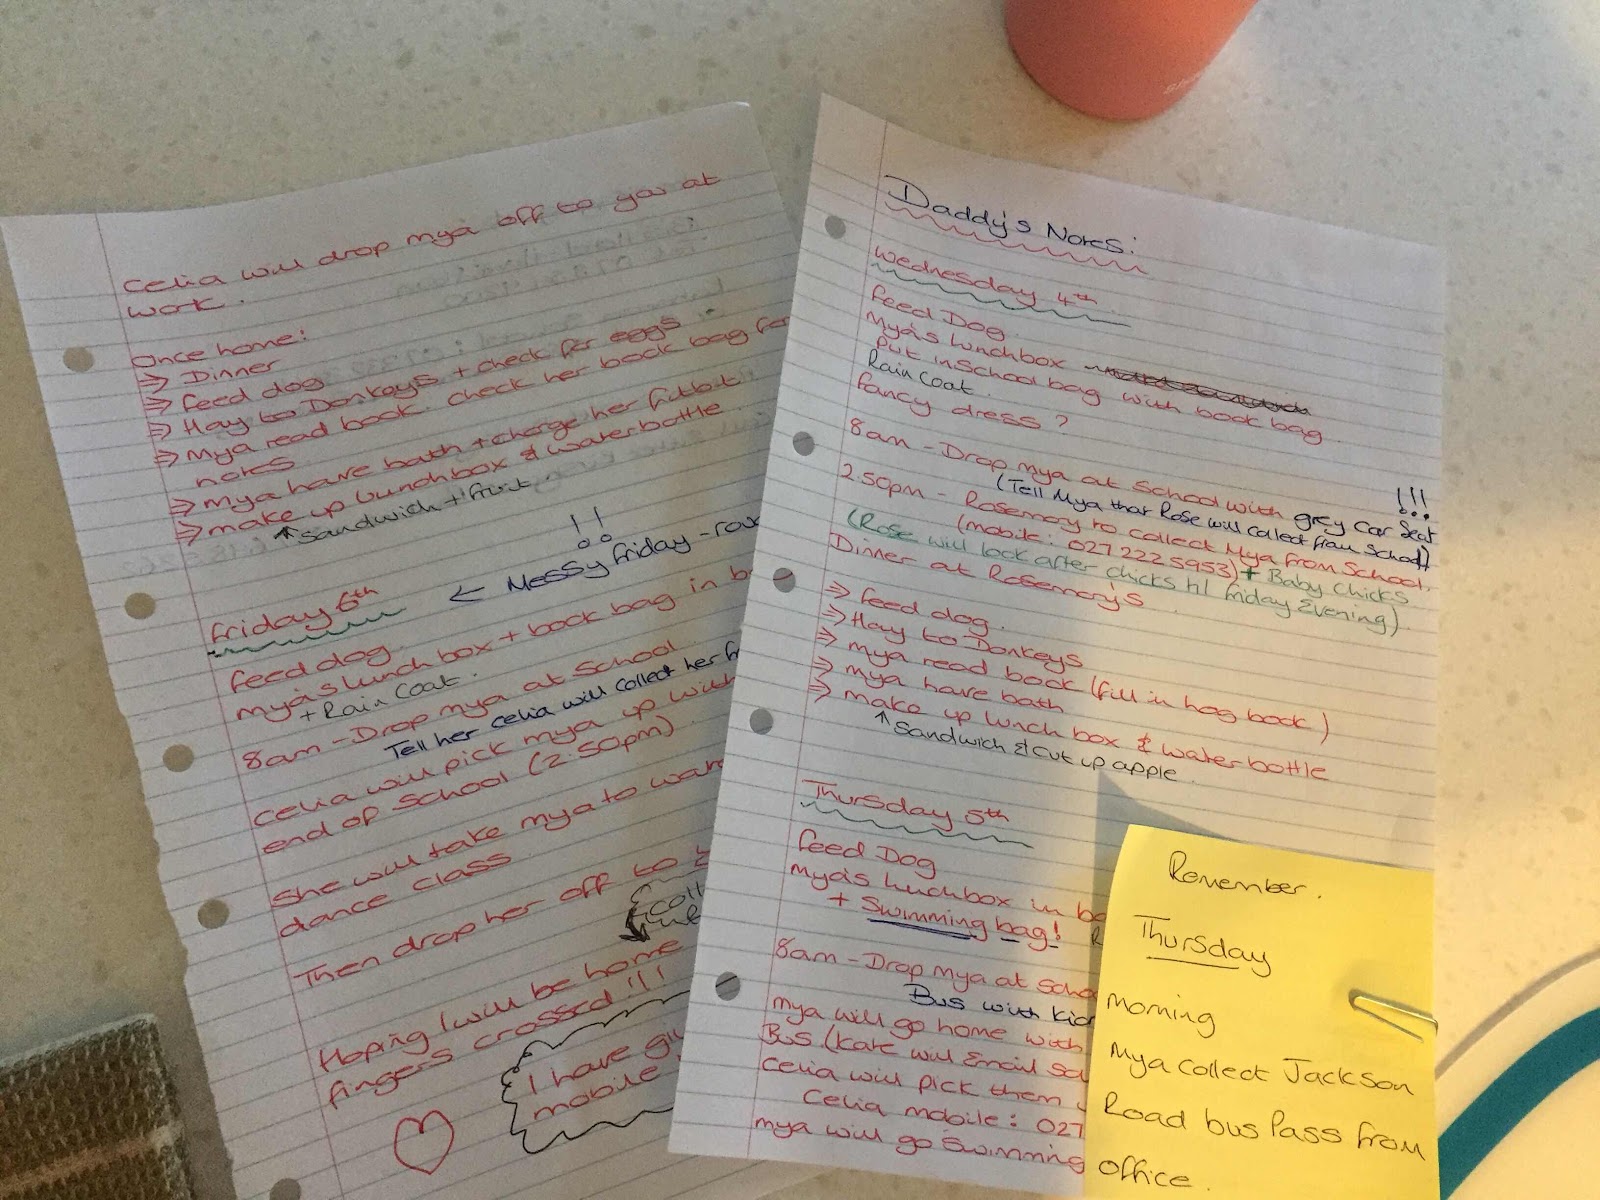 Daddy's Notes:
Wednesday 4th
feed Dog
Mya's lunchbox
Put in School bag with book bag
Rain Coat.
fancy dress?
8am - Drop Mya at School with grey Car Seat !!!
(Tell Mya that Rose will collect from School)
2.50pm - Rosemary to collect Mya from School.
(mobile: 027 222 5953) + Baby Chicks
(Rose will look after chicks til friday Evening)
Dinner at Rosemary's
⇒ feed dog
⇒ Hay to Donkeys
⇒ mya read book (fill in hog book)
⇒ mya have bath
⇒ make up lunch box & waterbottle
↑ Sandwich & cut up apple
Thursday 5th
feed Dog
Mya's lunchbox in
+ Swimming bag!
8am - Drop Mya at
Bus with
mya will go home with
Bus (Kate will Email
Celia will pick them
Celia mobile: 027
mya will go Swimming
Remember.
Thursday
morning
Mya collect Jackson
Road bus Pass from
office.
Celia will drop mya off to you at
work.
Once home:
⇒ Dinner
⇒ feed dog
⇒ Hay to Donkeys + check for eggs
⇒ Mya read book. check her book bag for
notes
⇒ mya have bath + charge her fitbit
⇒ make up lunchbox & waterbottle
↑ Sandwich + fruit.
!!
friday 6th ← Messy friday -
feed dog
mya's lunchbox + book bag in
+ Rain Coat.
8am - Drop mya at School
Tell her Celia will collect her
Celia will pick mya up with
end of School (2.50pm)
She will take mya to
dance class
Then drop her off to
Hoping I will be home
fingers crossed!!!
I have
mobile